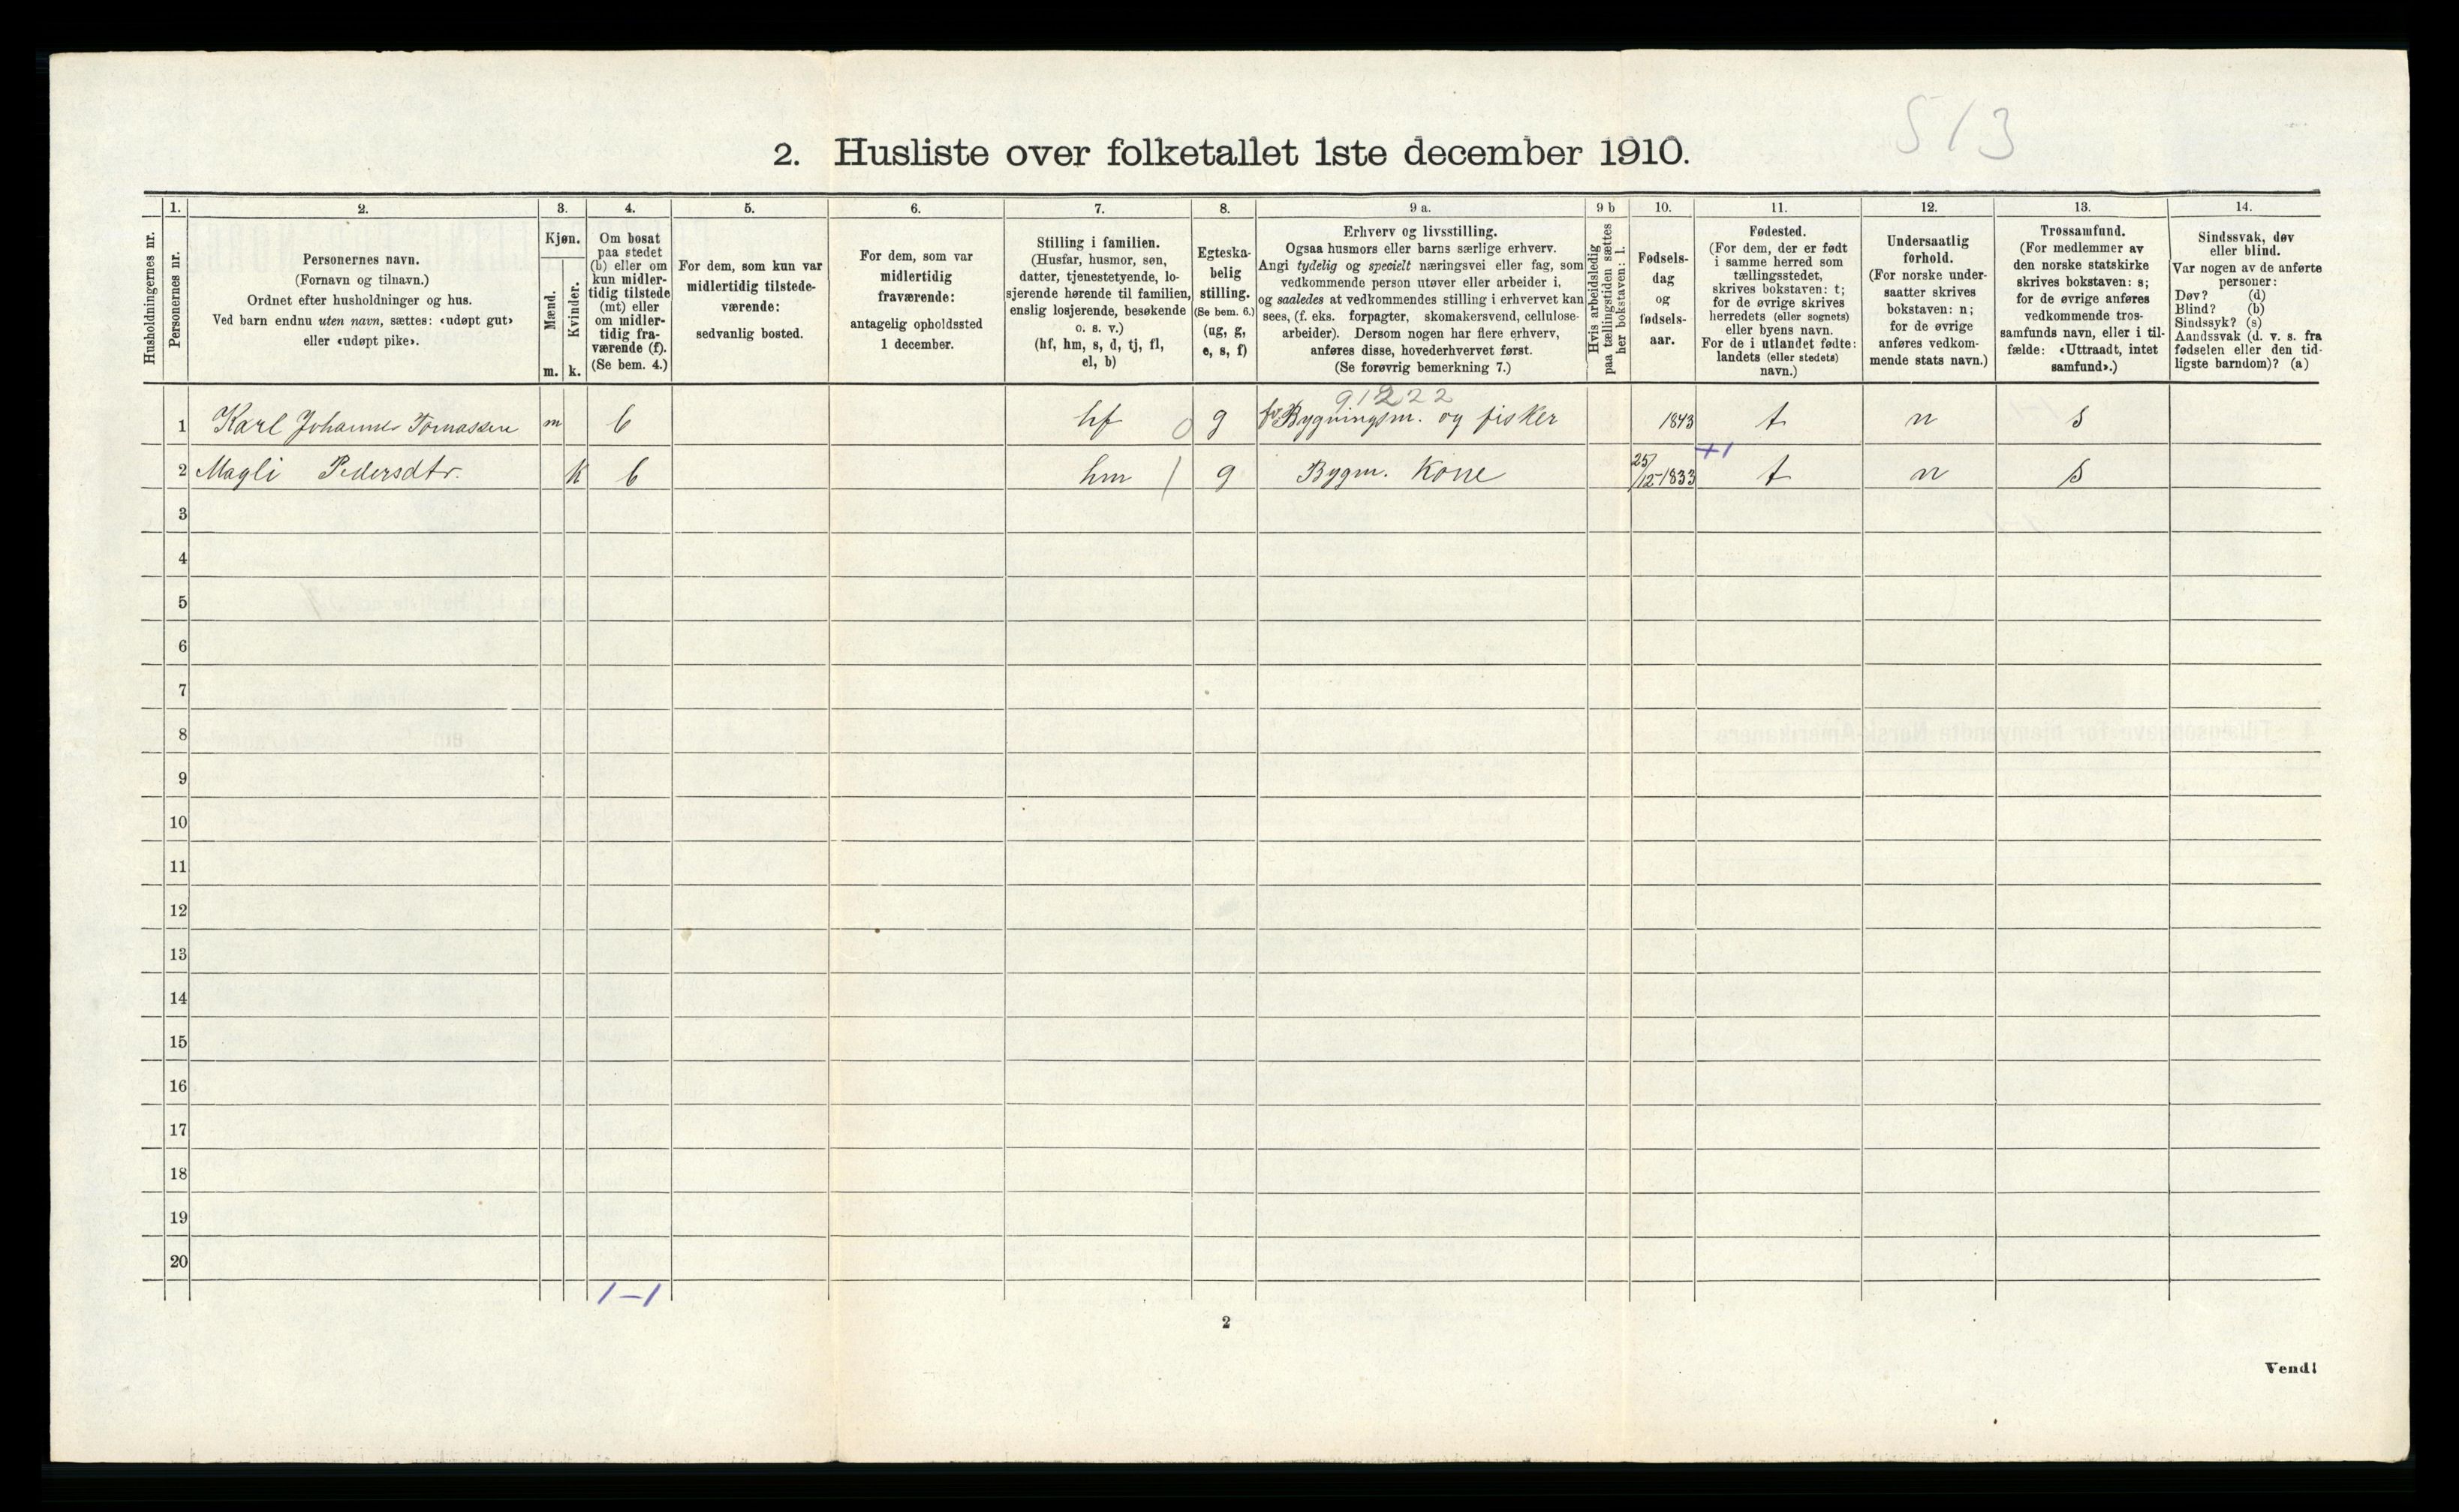 513
2. Husliste over folketallet 1ste december 1910.
Husholdningernes nr.
1.
Personernes nr.
2.
Personernes navn.
(Fornavn og tilnavn.)
Ordnet efter husholdninger og hus.
Ved barn endnu uten navn, sættes: «udøpt gut»
eller «udøpt pike».
3.
Kjøn.
Mænd.
Kvinder.
m.
k.
4.
Om bosat
paa stedet
(b) eller om
kun midler-
tidig tilstede
(mt) eller
om midler-
tidig fra-
værende (f).
(Se bem. 4.)
5.
For dem, som kun var
midlertidig tilstede-
værende:
sedvanlig bosted.
6.
For dem, som var
midlertidig
fraværende:
antagelig opholdssted
1 december.
7.
Stilling i familien.
(Husfar, husmor, søn,
datter, tjenestetyende, lo-
sjerende hørende til familien,
enslig losjerende, besøkende
o. s. v.)
(hf, hm, s, d, tj, fl,
el, b)
8.
Egteska-
belig
stilling.
(Se bem. 6.)
(ug, g,
e, s, f)
9 a.
Erhverv og livsstilling.
Ogsaa husmors eller barns særlige erhverv.
Angi tydelig og specielt næringsvei eller fag, som
vedkommende person utøver eller arbeider i,
og saaledes at vedkommendes stilling i erhvervet kan
sees, (f. eks. forpagter, skomakersvend, cellulose-
arbeider). Dersom nogen har flere erhverv,
anføres disse, hovederhvervet først.
(Se forøvrig bemerkning 7.)
9 b
Hvis arbeidsledig
paa tællingstiden sættes
her bokstaven: l.
10.
Fødsels-
dag
og
fødsels-
aar.
11.
Fødested.
(For dem, der er født
i samme herred som
tællingsstedet,
skrives bokstaven: t;
for de øvrige skrives
herredets (eller sognets)
eller byens navn.
For de i utlandet fødte:
landets (eller stedets)
navn.)
12.
Undersaatlig
forhold.
(For norske under-
saatter skrives
bokstaven: n;
for de øvrige
anføres vedkom-
mende stats navn.)
13.
Trossamfund.
(For medlemmer av
den norske statskirke
skrives bokstaven: s;
for de øvrige anføres
vedkommende tros-
samfunds navn, eller i til-
fælde: «Uttraadt, intet
samfund».)
14.
Sindssvak, døv
eller blind.
Var nogen av de anførte
personer:
Døv? (d)
Blind? (b)
Sindssyk? (s)
Aandssvak (d. v. s. fra
fødselen eller den tid-
ligste barndom)? (a)
91222
1 Karl Johannes Tomassen m b hf 0 g Bygningsm. og fisker 1843 t n s
+1
2 Magli Pedersdtr. k b hm 1 g Bygm. Kone 25/12-1833 t n s
3
4
5
6
7
8
9
10
11
12
13
14
15
16
17
18
19
20
1-1
2
Vend!